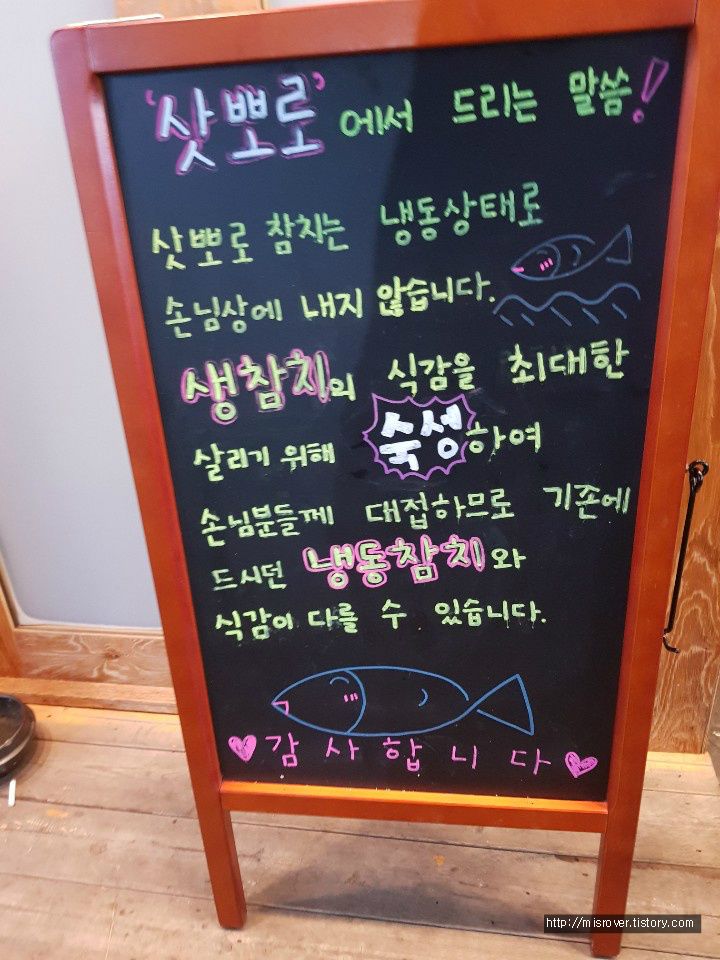 '삿뽀로'에서 드리는 말씀!
삿뽀로 참치는 냉동상태로
손님상에 내지 않습니다.
생참치의 식감을 최대한
살리기 위해 숙성하여
손님분들께 대접하므로 기존에
드시던 냉동참치와
식감이 다를 수 있습니다.
♡감사합니다♡
http://misrover.tistory.com